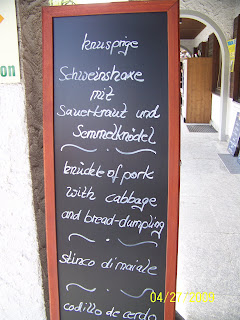 knusprige
Schweinshaxe
mit
Sauerkraut und
Semmelknödel
knückle of pork
with cabbage
and bread-dumpling
stinco di maiale
codillo de cerdo
on